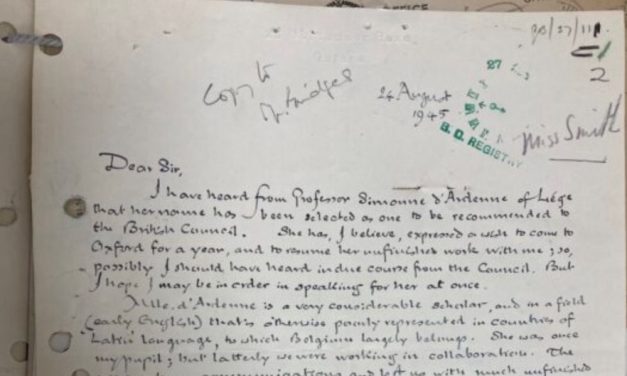 OFFICE
Copy to
Mr. Bridges
24 August
1945
27
B. D. REGISTRY
2
Miss Smith
Dear Sir,
I have heard from Professor Simonne d'Ardenne of Liége
that her name has been selected as one to be recommended to
the British Council. She has, I believe, expressed a wish to come to
Oxford for a year, and to resume her unfinished work with me; so,
possibly I should have heard in due course from the Council. But
I hope I may be in order in speaking for her at once.
Mlle. d'Ardenne is a very considerable scholar, and in a field
(early English) that is otherwise poorly represented in countries of
Latin language, to which Belgium largely belongs. She was once
my pupil; but latterly we were working in collaboration. The
communications and left us with much unfinished